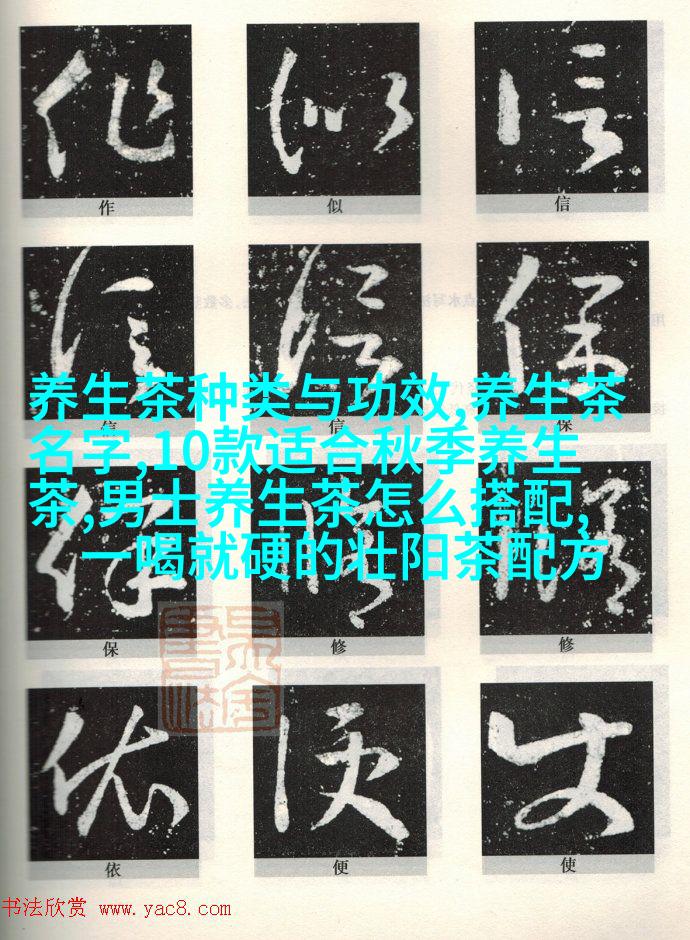 作 似 信
作 似 信
信 信 保
信 信 保
养生茶种类与功效,养生茶
名字,10款适合秋季养生
茶,男士养生茶怎么搭配,
一喝就硬的壮阳茶配方
保 修 修
保 修 修
依 便 使
依 便 使
书法欣赏 www.yac8.com